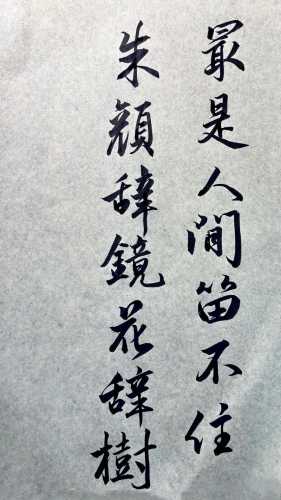 最是人間留不住
朱顔辭鏡花辭樹